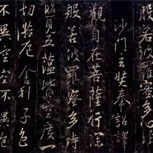 般若波羅蜜多
沙門玄奘奉詔譯
觀自在菩薩行深
般若波羅蜜多時
照見五蘊皆空度
切苦厄舍利子色
不異空空不異